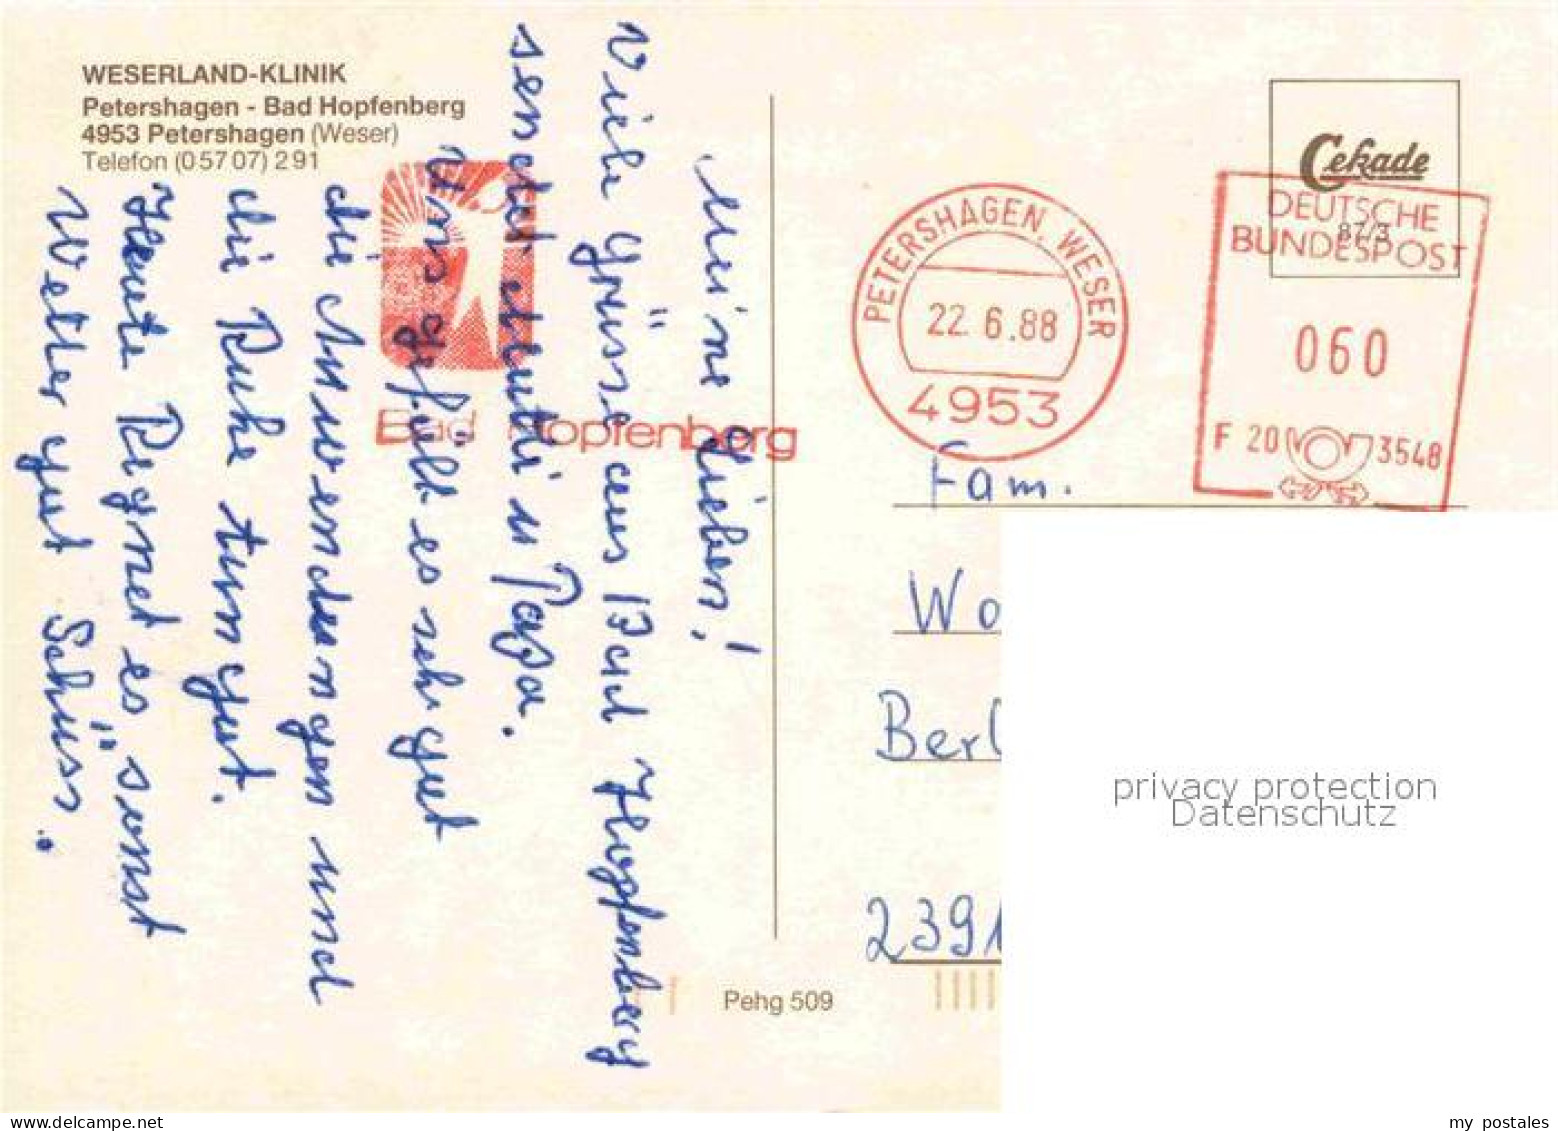 WESERLAND-KLINIK
Petershagen - Bad Hopfenberg
4953 Petershagen (Weser)
Telefon (0 57 07) 2 91
Meine Lieben!
Viele Grüsse aus Bad Hopfenberg
sendet Mutti u Papa.
Uns gefällt es sehr gut
die Anwendungen und
die Ruhe tun gut.
Heute Regnet es sonst
Wetter gut Schüss.
Bad Hopfenberg
PETERSHAGEN, WESER
22.6.88
4953
Cekade
87/3
DEUTSCHE
BUNDESPOST
060
F 20 3548
Fam.
Wo
Berl
2391
privacy protection
Datenschutz
Pehg 509
my postales